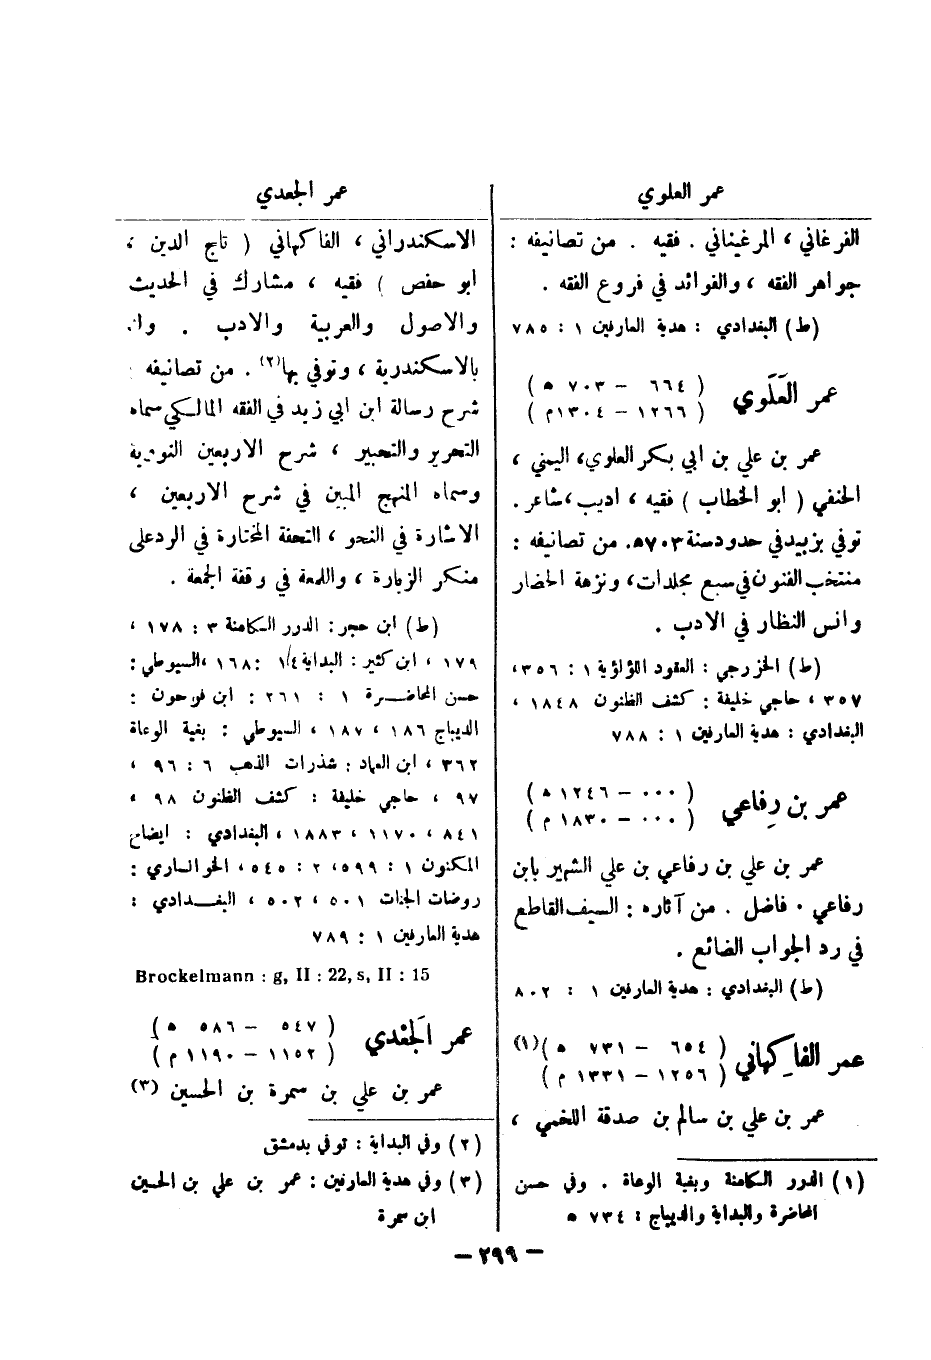 عمر العلوي
الفرغاني ، المرغيناني . فقيه . من تصانيفه :
جواهر الفقه ، والفوائد في فروع الفقه .
(ط) البغدادي : هدية العارفين ١ : ٧٨٥
عمر العَلَوي ( ٦٦٤ – ٧٠٣ ھ )
( ١٢٦٦ – ١٣٠٤م )
عمر بن علي بن ابي بكر العلوي، اليمني ،
الحنفي ( ابو الخطاب ) فقيه ، اديب ، شاعر .
توفي بزبيد في حدود سنة ٧٠٣ھ. من تصانيفه :
منتخب الفنون في سبع مجلدات، ونزهة الحضار
وانس النظار في الادب .
(ط) الخزرجي : العقود اللؤلؤية ١ : ٣٥٦،
٣٥٧ ، حاجي خليفة : كشف الظنون ١٨٤٨ ،
البغدادي : هدية العارفين ١ : ٧٨٨
عمر بن رِفاعي ( ٠٠٠ – ١٢٤٦ ھ )
( ٠٠٠ – ١٨٣٠ م )
عمر بن علي بن رفاعي بن علي الشهير بابن
رفاعي . فاضل . من آثاره : السيف القاطع
في رد الجواب الضائع .
(ط) البغدادي : هدية العارفين ١ : ٨٠٢
عمر الفاكِهاني ( ٦٥٤ – ٧٣١ ھ )(١)
( ١٢٥٦ – ١٣٣١ م )
عمر بن علي بن سالم بن صدقة اللخمي ،
(١) الدرر الكامنة وبغية الوعاة . وفي حسن
المحاضرة والبداية والديباج : ٧٣٤ ھ
عمر الجعدي
الاسكندراني ، الفاكهاني ( تاج الدين ،
ابو حفص ) فقيه ، مشارك في الحديث
والاصول والعربية والادب .
بالاسكندرية ، وتوفي بها(٢) . من تصانيفه :
شرح رسالة ابن ابي زيد في الفقه المالكي سماه
التحرير والتحبير ، شرح الاربعين النووية
وسماه المنهج المبين في شرح الاربعين ،
الاشارة في النحو ، التحفة المختارة في الرد على
منكر الزيارة ، واللمعة في وقفة الجمعة .
(ط) ابن حجر : الدرر الكامنة ٣ : ١٧٨ ،
١٧٩ ، ابن كثير : البداية ١/٤ : ١٦٨ ،السيوطي :
حسن المحاضرة ١ : ٢٦١ : ابن فرحون :
الديباج ١٨٦ ، ١٨٧ ، السيوطي : بغية الوعاة
٣٦٢ ، ابن العماد : شذرات الذهب ٦ : ٩٦ ،
٩٧ ، حاجي خليفة : كشف الظنون ٩٨ ،
٨٤١ ، ١١٧٠ ، ١٨٨٣ ، البغدادي : ايضاح
المكنون ١ : ٥٩٩، ٢ : ٥٤٥ ، الخوانساري :
روضات الجنات ٥٠١ ، ٥٠٢ ، البغدادي :
هدية العارفين ١ : ٧٨٩
Brockelmann : g, II : 22, s, II : 15
عمر الجَعْدي ( ٥٤٧ – ٥٨٦ ھ )
( ١١٥٢ – ١١٩٠ م )
عمر بن علي بن سمرة بن الحسين (٣)
(٢) وفي البداية : توفي بدمشق
(٣) وفي هدية العارفين : عمر بن علي بن الحسين
ابن سمرة
– ٢٩٩ –